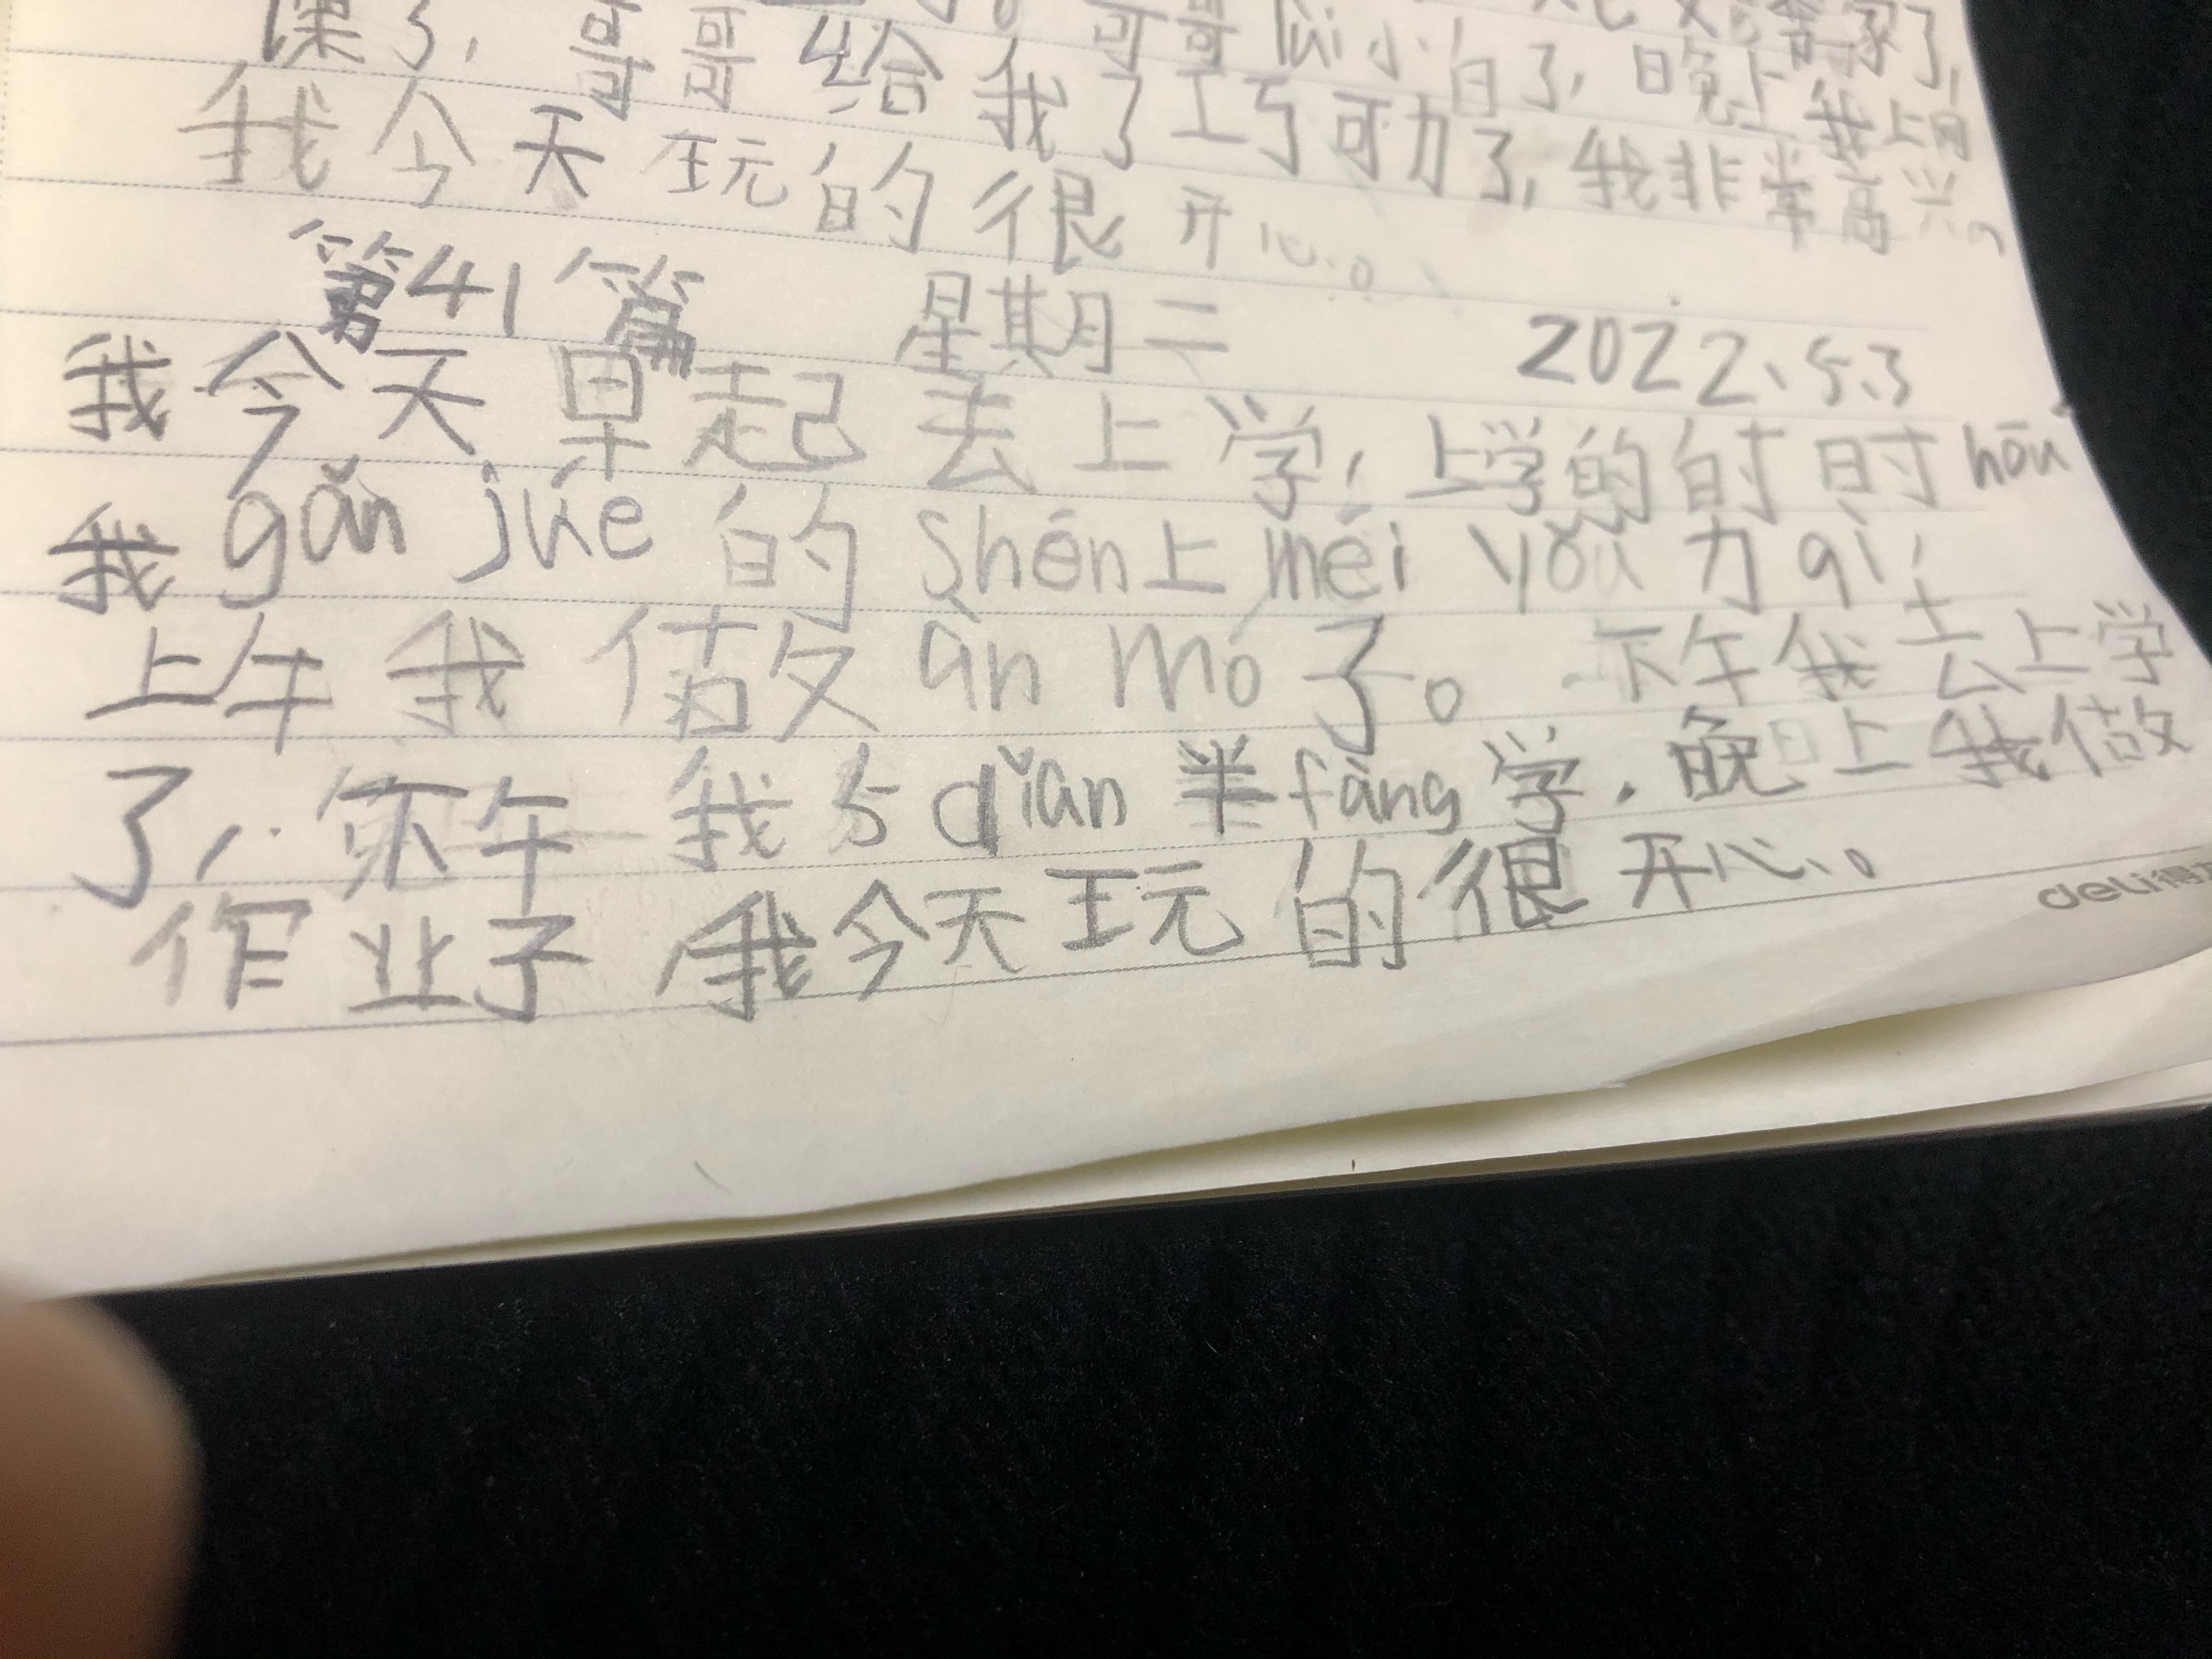 家了,
课了, 哥哥给我了巧可力了, 我非常高兴。
哥哥 lüi 小白了, 晚上我
我今天玩的很开心。
第41篇 星期二 2022、5.3
我今天早起去上学, 上学的的时时 hōu
我 gǎn jué 的 shēn 上 méi yǒu 力 qì,
上午我做 àn mó 了。下午我去上学
了, 下午我 5 diǎn 半 fàng 学. 晚上我做
作业了, 我今天玩的很开心。
deli 得力